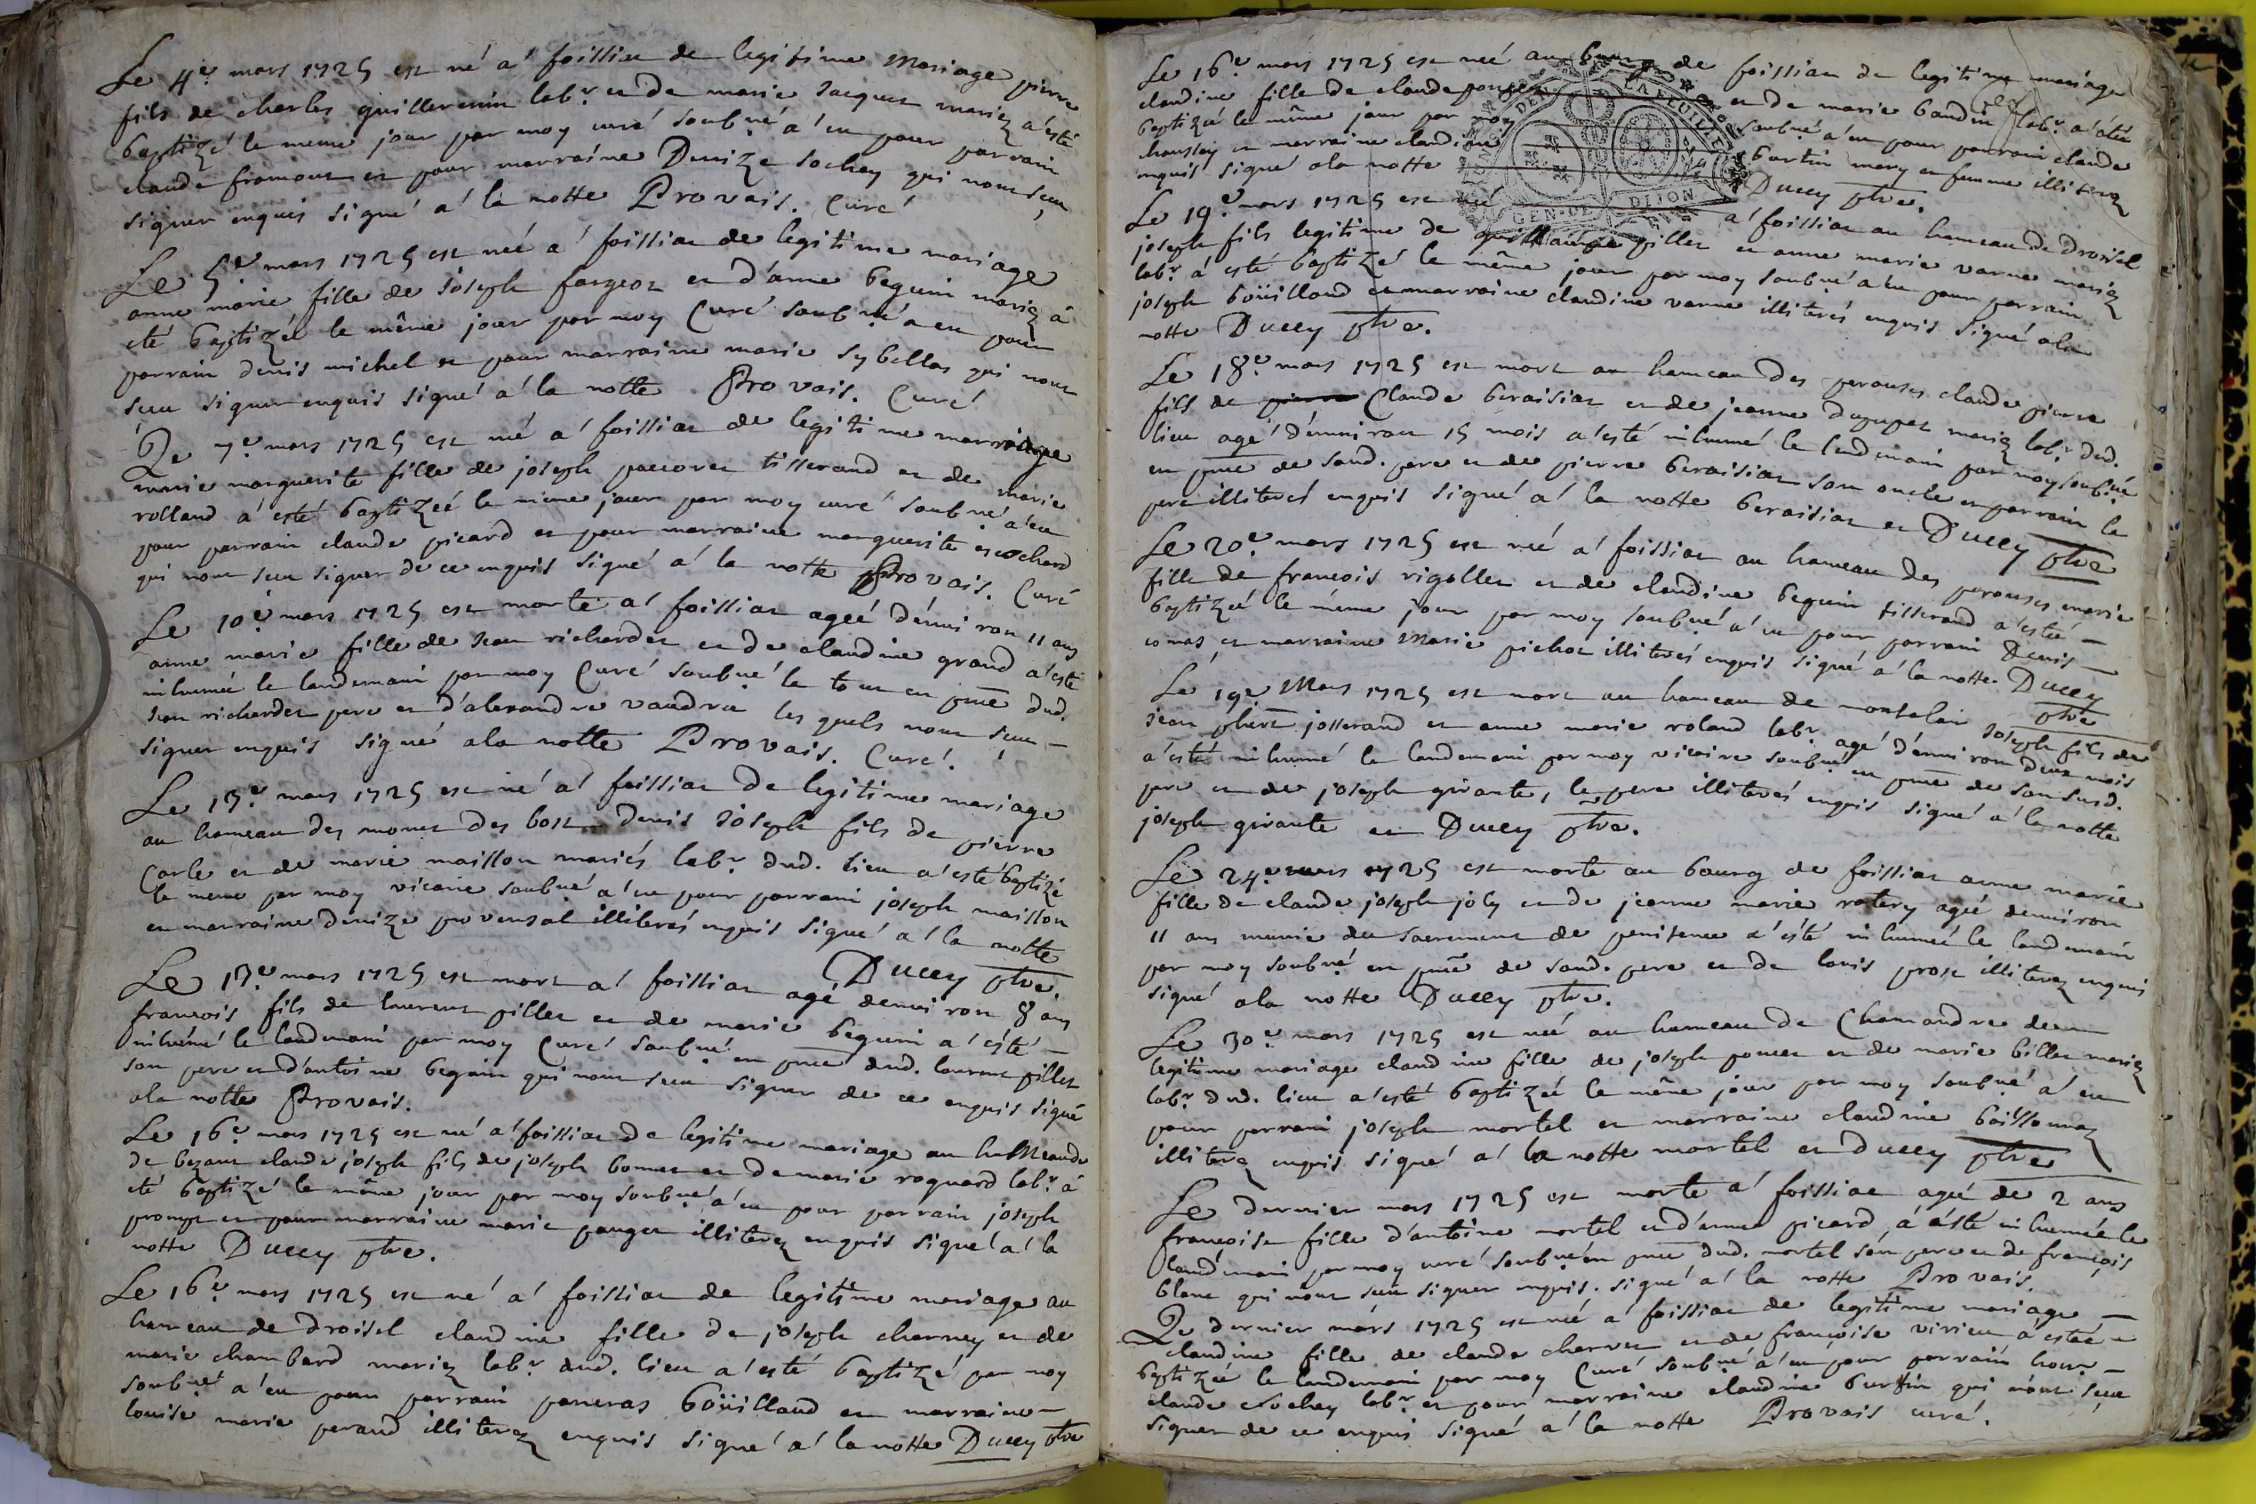 Le 4e mars 1725 est né a' foissiat de legitime Mariage pierre
fils de charles guillermin labr et de marie Jacquet mariez a'esté
baptizé le meme jour par moy curé soubné a' eu pour parrain
claude fromont et pour marraine Denize Sochay qui n'ont sceu
signer enquis signé a' la notte Provais. Curé
Le 5e mars 1725 est neé a' foissiat de legitime mariage
anne marie fille de Joseph fargeot et d'anne beguin mariez a'
eté baptizeé le même jour par moy Curé soubné a eu pour
parrain denis michel et pour marraine marie Sybellas qui n'ont
sceu signer enquis signé a' la notte Provais. Curé
Le 7e mars 1725 est neé a' foissiat de legitime marriage
marie marguerite fille de joseph tisserand et de marie
rolland a' esté baptizeé le même jour par moy curé soubné a'eu
pour parrain claude picard et pour marraine marguerite escochard
qui n'ont sceu signer de ce enquis signé a' la notte Provais. Curé
Le 10e mars 1725 est morte a' foissiat ageé d'environ 11 ans
anne marie fille de Jean richardet et de claudine grand a'esté
inhumeé le landemain par moy Curé soubné le tout en pnce dud.
Jean richardet pere et d'alexandre vaudra les quels n'ont sceu
signer enquis signé a la notte Provais. Curé.
Le 13e mars 1725 est né a' foissiat de legitime mariage
au hameau des monet des bost denis Joseph fils de pierre
Carle et de marie maisson mariés labr dud. lieu a'esté baptizé
le meme par moy vicaire soubné a' eu pour parrain joseph maisson
et marraine denize provensal illiterés enquis signé a' la notte
Ducey ptre.
Le 13e mars 1725 est mort a' foissiat agé denviron 8 ans
francois fils de laurent pillet et de marie beguin a' esté
inhumé le landemain par moy Curé soubné en pnce dud. laurent pillet
son pere et d'antoine beguin qui n'ont sceu signer de ce enquis signé
a la notte Provais.
Le 16e mars 1725 est né a' foissiat de legitime mariage au hameaude
de bezane claude joseph fils de joseph bomet et de marie roquard labr a'
eté baptizé le même jour par moy soubné a' eu pour parrain joseph
prompt et pour marraine marie pauget illiterez enquis signé a' la
notte Ducey ptre.
Le 16e mars 1725 est né a' foissiat de legitime mariage au
hameau de droisel claudine fille de joseph charney et de
marie chambard mariez labr dud. lieu a'esté baptizé par moy
soubné a' eu pour parrain pancras boüilloud et marraine
louise marie perand illiterez enquis signé a' la notte Ducey ptre
Le 16e mars 1725 est neé au bourg de foissiat de legitime mariage
claudine fille de claude et de marie baudin labr a'eté
baptizeé le même jour par moy soubné a' eu pour parrain claude
et marraine claudine bartin mary et femme illiterez
enquis signé a la notte Ducey ptre.
Le 19e mars 1725 est né a' foissiat au hameau de Droisel
joseph fils legitime de guillaume pillet et anne marie varne mariez
labr a' esté baptizé le même jour par moy soubné a eu pour parrain
joseph boüilloud et marraine claudine varne illiterés enquis signé a la
notte Ducey ptre.
Le 18e mars 1725 est mort au hameau des perouses claude pierre
fils de pierre Claude beraisiat et de jeanne dupupet mariez labr dud.
lieu agé d'environ 15 mois a'esté inhumé le lendemain par moy soubné
en pnce de sond. pere et de pierre beraisiat son oncle et parrain le
pere illiteré enquis signé a' la notte beraisiat et Ducey ptre
Le 20e mars 1725 est neé a' foissiat au hameau des perouses marie
fille de francois rigollet et de claudine beguin tisserand a'esté
baptizeé le même jour par moy soubné a' eu pour parrain Denis
comas et marraine Marie pichot illiterés enquis signé a' la notte. Ducey
ptre
Le 19e Mars 1725 est mort au hameau de montalin Joseph fils de
jean phert josserand et anne marie roland labr agé d'environ deux mois
a'esté inhumé le landemain par moy vicaire soubné en pnce de son susd.
pere et de joseph girante, le pere illiterés enquis signé a' la notte
joseph girante et Ducey ptre.
Le 24e mars 1725 est morte au bourg de foissiat anne marie
fille de claude joseph joly et de jeanne marie ratery ageé denviron
11 ans munie du sacrement de penitence a'esté inhumeé le landemain
par moy soubné en pnce de sond. pere et de louis prost illiterez enquis
signé a la notte Ducey ptre.
Le 30e mars 1725 est neé au hameau de Chamandre de
legitime mariage claudine fille de joseph poncet et de marie billet mariez
labr dud. lieu a'esté baptizeé le même jour par moy soubné a' eu
pour parrain joseph mortel et marraine claudine boissonnaz
illiterez enquis signé a' la notte mortel et ducey ptre
Le dernier mars 1725 est morte a' foissiat ageé de 2 ans
francoise fille d'antoine mortel et d'anne picard a' esté inhumeé le
landemain par moy curé soubné en pnce dud. mortel son pere et de françois
blanc qui n'ont sceu signer enquis. signé a' la notte Provais.
Le dernier mars 1725 est neé a' foissiat de legitime mariage
claudine fille de claude charvet et de françoise virieu a'esteé
baptizeé le landemain par moy Curé soubné a' eu pour parrain
claude Sochay labr et pour marraine claudine burtin qui n'ont sceu
signer de ce enquis signé a' la notte Provais curé.
GEN.DE DIJON